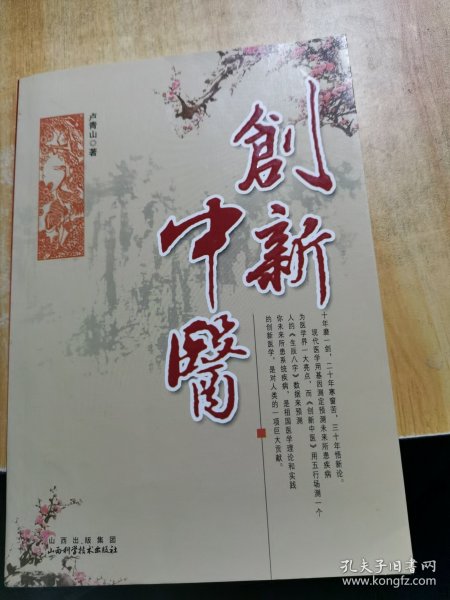 創新
中醫
卢青山◎著
十年磨一剑，二十年寒窗苦，三十年悟新论。
现代医学用基因测定预测未来所患疾病
为医学界一大亮点，而《创新中医》用五行场测一个
人的《生辰八字》数据来预测
你未来所患系统疾病，是祖国医学理论和实践
的创新医学，是对人类的一项巨大贡献。
山西出版集团
山西科学技术出版社
孔夫子旧书网
www.kongfz.com